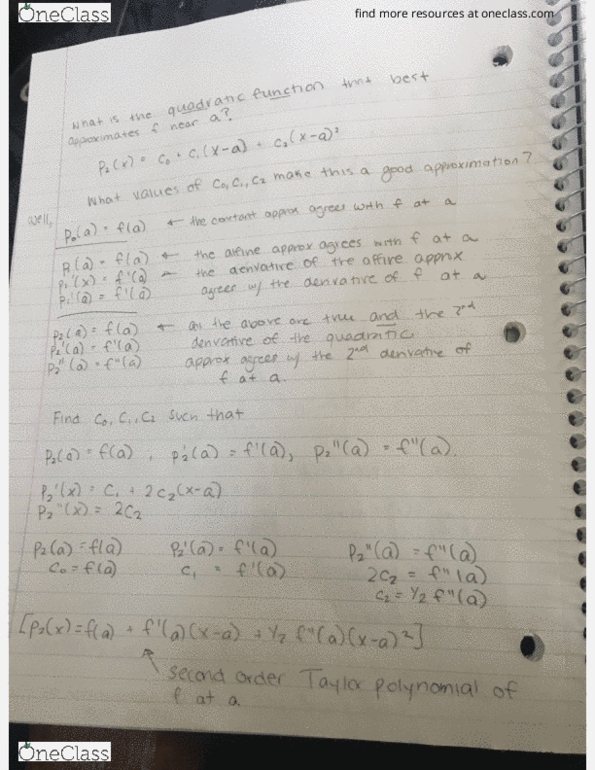 OneClass
find more resources at oneclass.com
What is the quadratic function that best
approximates f near a?
P₂(x) = C₀ + C₁(x-a) + C₂(x-a)²
What values of C₀, C₁, C₂ make this a good approximation?
well,
P₀(a) = f(a) ← the constant approx agrees with f at a
P₁(a) = f(a) ← the affine approx agrees with f at a
P₁'(x) = f'(a) ← the derivative of the affine apprix
P₁'(a) = f'(a) agrees w/ the derivative of f at a
P₂(a) = f(a) ← all the above are true and the 2nd
P₂'(a) = f'(a) derivative of the quadratic
P₂"(a) = f"(a) approx agrees w/ the 2nd derivative of
f at a.
Find C₀, C₁, C₂ such that
P₂(a) = f(a), P₂'(a) = f'(a), P₂"(a) = f"(a).
P₂'(x) = C₁ + 2C₂(x-a)
P₂"(x) = 2C₂
P₂(a) = f(a) P₂'(a) = f'(a) P₂"(a) = f"(a)
C₀ = f(a) C₁ = f'(a) 2C₂ = f"(a)
C₂ = 1/2 f"(a)
[P₂(x) = f(a) + f'(a)(x-a) + 1/2 f"(a)(x-a)²]
second order Taylor polynomial of
f at a
OneClass